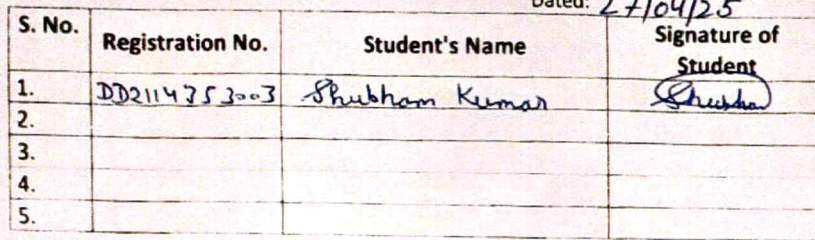 Dated: 27/04/25
S. No. Registration No. Student's Name Signature of Student
1. DD2114353003 Shubham Kumar Shubham
2.
3.
4.
5.